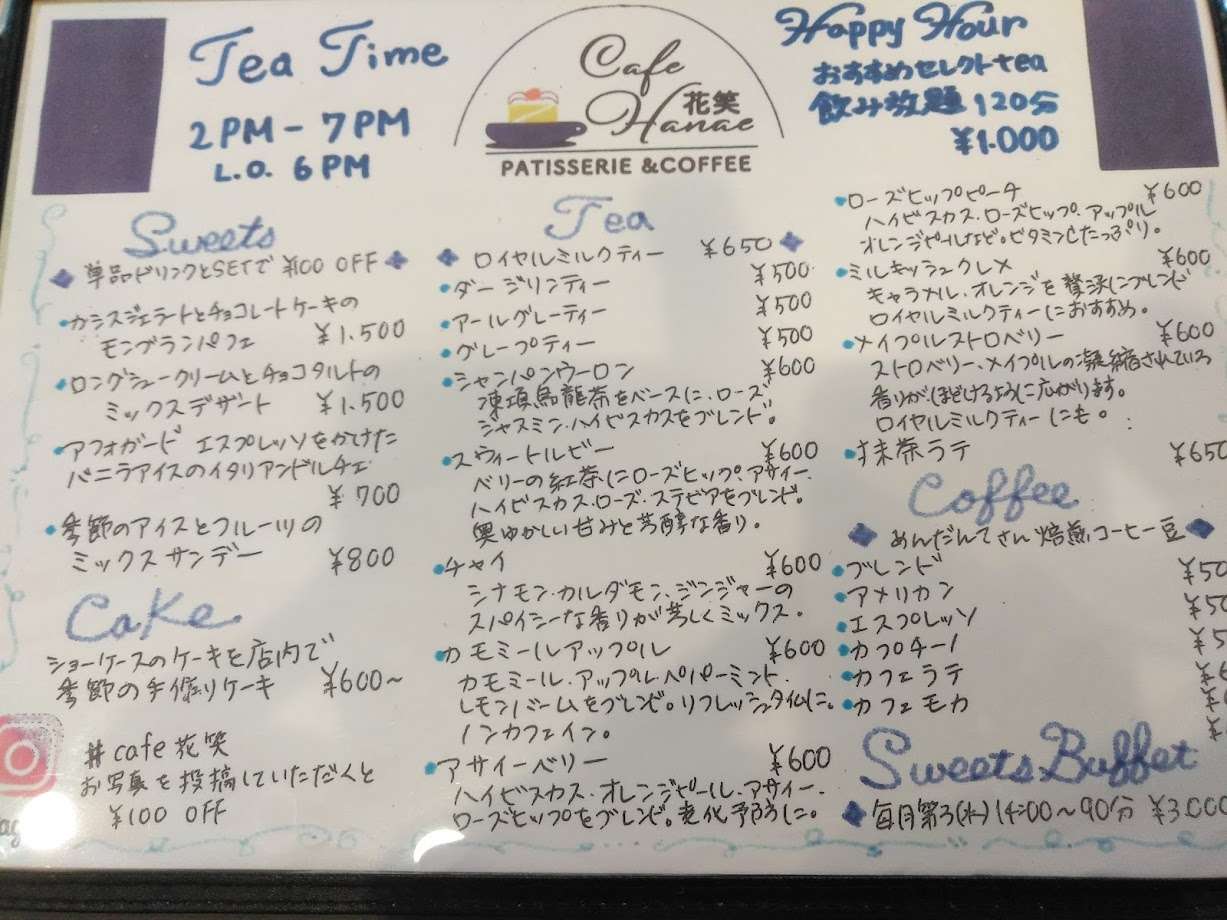 Tea Time
2PM - 7PM
L.O. 6PM
Cafe
花笑
Hanae
PATISSERIE & COFFEE
Happy Hour
おすすめセレクトtea
飲み放題 120分
¥1.000
Sweets
単品ドリンクとSETで ¥100 OFF
・カシスジェラートとチョコレートケーキの
モンブランパフェ ¥1.500
・ロングシュークリームとチョコタルトの
ミックスデザート ¥1.500
・アフォガード エスプレッソをかけた
バニラアイスのイタリアンドルチェ
¥700
・季節のアイスとフルーツの
ミックスサンデー ¥800
Cake
ショーケースのケーキを店内で
季節の手作りケーキ ¥600〜
#cafe花笑
お写真を投稿していただくと
¥100 OFF
Tea
ロイヤルミルクティー ¥650
・ダージリンティー ¥500
・アールグレーティー ¥500
・グレープティー ¥500
・シャンパンウーロン ¥600
凍頂烏龍茶をベースに、ローズ、
ジャスミン、ハイビスカスをブレンド。
・スウィートルビー ¥600
ベリーの紅茶にローズヒップ、アサイー、
ハイビスカス、ローズ、ステビアをブレンド。
奥ゆかしい甘みと芳醇な香り。
・チャイ ¥600
シナモン、カルダモン、ジンジャーの
スパイシーな香りが美しくミックス。
・カモミールアップル ¥600
カモミール、アップル、ペパーミント、
レモンバームをブレンド。リフレッシュタイムに。
ノンカフェイン。
・アサイーベリー ¥600
ハイビスカス、オレンジピール、アサイー、
ローズヒップをブレンド。老化予防に。
・ローズヒップピーチ ¥600
ハイビスカス、ローズヒップ、アップル
オレンジピールなど。ビタミンCたっぷり。
・ミルキッシュクレメ ¥600
キャラメル、オレンジを贅沢にブレンド
ロイヤルミルクティーにおすすめ。
・メイプルストロベリー ¥600
ストロベリー、メイプルの凝縮されている
香りがほどけるように広がります。
ロイヤルミルクティーにも。
・抹茶ラテ ¥650
Coffee
めんだんてさん焙煎コーヒー豆
・ブレンド
・アメリカン
・エスプレッソ
・カプチーノ
・カフェラテ
・カフェモカ
Sweets Buffet
毎月第3(水) 14:00〜90分 ¥3.000